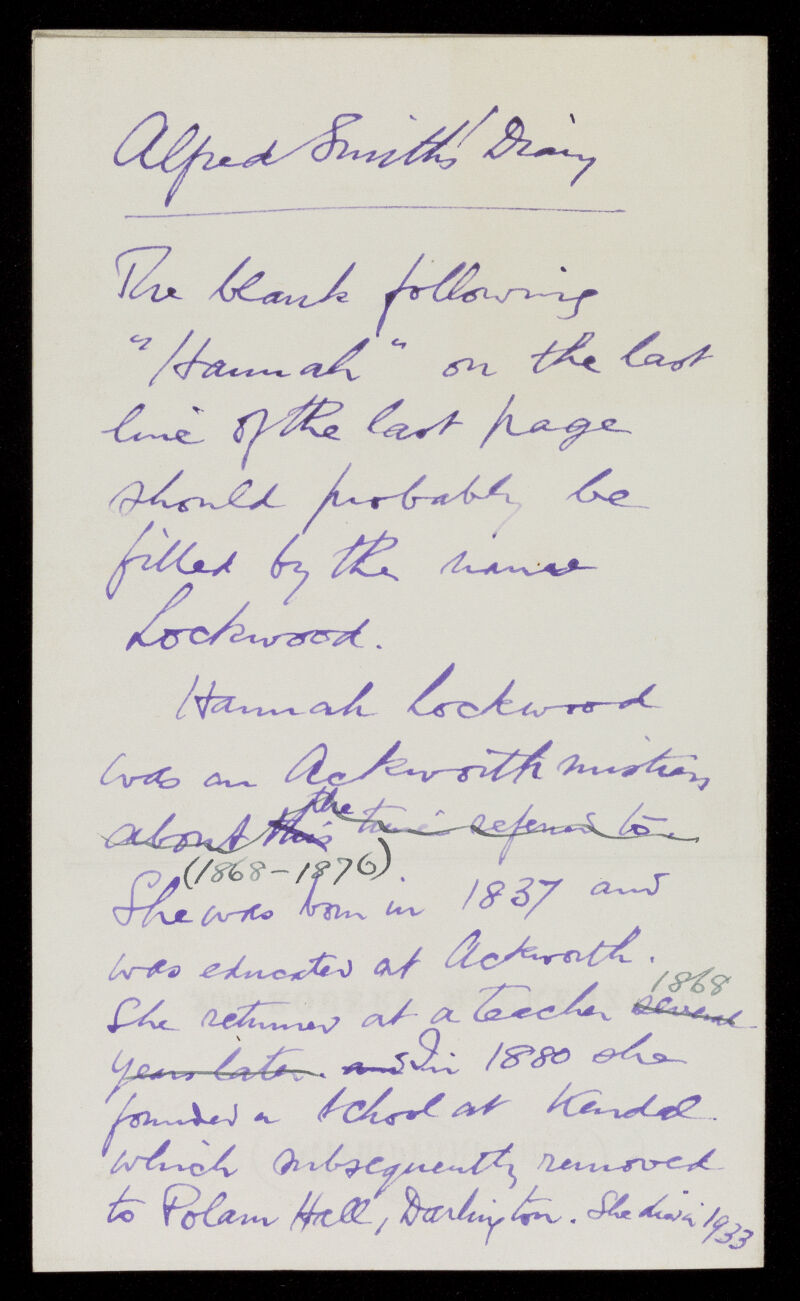 Alfred Smith's Diary
The blank following
"Hannah" on the last
line of the last page
should probably be
filled by the name
Lockwood.
Hannah Lockwood
was an Ackworth mistress
the
about this time referred to
(1868-1876)
She was born in 1837 and
was educated at Ackworth.
1868
She returned at a teacher several
years later. and In 1880 she
founded a school at Kendal
which subsequently removed
to Polam Hall, Darlington. She died in 1933